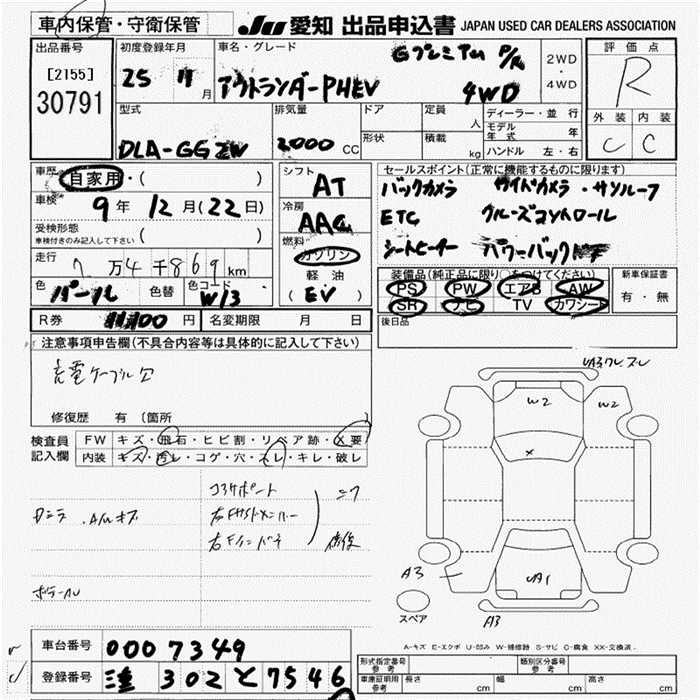 車内保管・守衛保管
JU 愛知 出品申込書 JAPAN USED CAR DEALERS ASSOCIATION
出品番号
[2155]
30791
初度登録年月
25 11月
車名・グレード
Gプレミアム P/R
アウトランダーPHEV 4WD
2WD
・
4WD
評価点
R
外装 内装
C C
型式
DLA-GG2W
排気量
2000 CC
ドア
形状
定員 人
積載 kg
ディーラー・並行
モデル年式 年
ハンドル 左・右
車歴 自家用・( )
車検 9年 12月(22日)
受検形態
車検付きのみ記入して下さい ( )
走行 7万4千869km
色 パール 色替 色コード W13
シフト AT
冷房 AAC
燃料 ガソリン
軽油
(EV)
セールスポイント(正常に機能するものに限ります)
バックカメラ サイドカメラ・サンルーフ
ETC クルーズコントロール
シートヒーター パワーバックドア
装備品(純正品に限り○をつけてください)
PS PW エアB AW
SR ナビ TV カワシート
新車保証書
有・無
後日品
R券 円 名変期限 月 日
注意事項申告欄(不具合内容等は具体的に記入して下さい)
充電ケーブル
修復歴 有 (箇所 )
検査員記入欄
FW キズ・飛石・ヒビ割・リペア跡・X要
内装 キズ・汚レ・コゲ・穴・スレ・キレ・破レ
コアサポート
右Fサイドメンバー
右Fインナー
修復
W2
W2
X
A3
UA1
A3
スペア
A-キズ E-エクボ U-凹み W-補修跡 S-サビ C-腐食 XX-交換済
車台番号 0007349
登録番号 302 と 7546
形式指定番号
参考
類別区分番号
参考
車庫証明用
参考
長さ cm 幅 cm 高さ cm